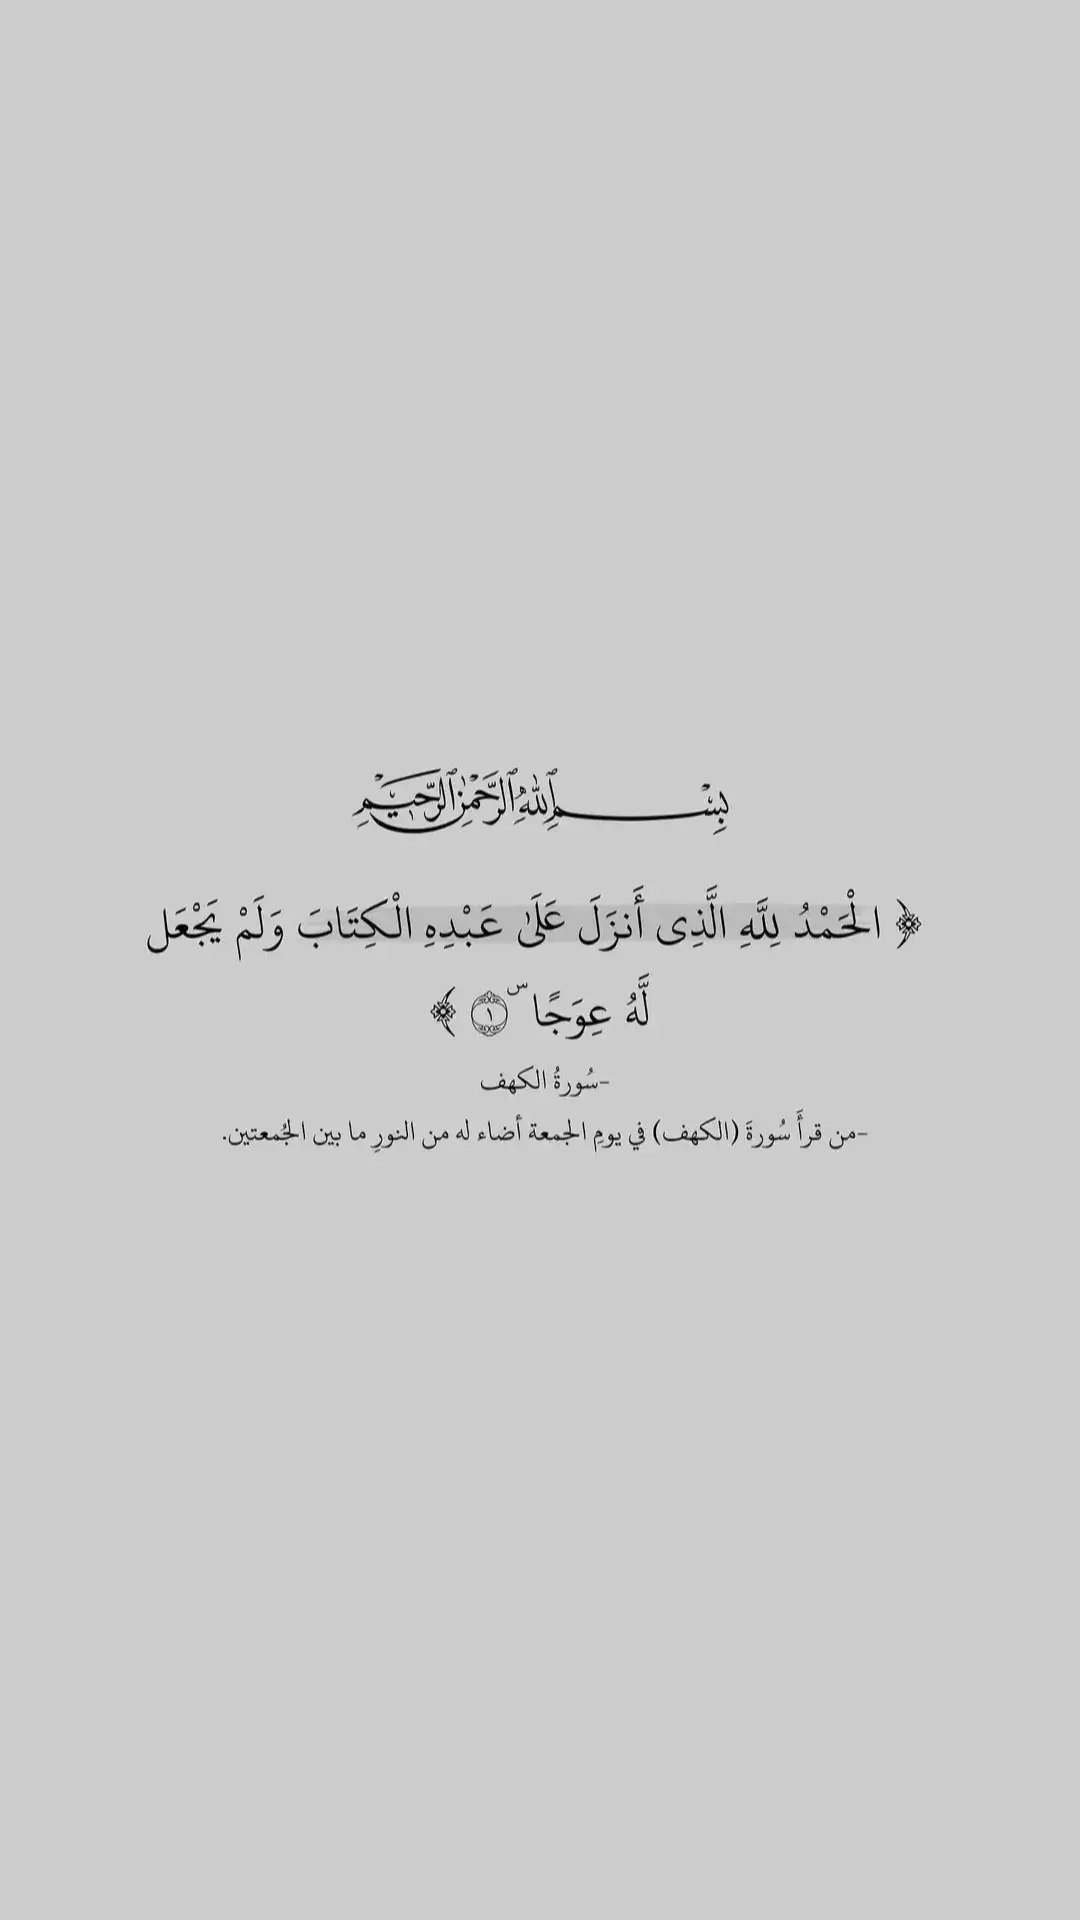 بِسْمِ ٱللَّهِ ٱلرَّحْمَٰنِ ٱلرَّحِيمِ
﴿ الْحَمْدُ لِلَّهِ الَّذِى أَنزَلَ عَلَىٰ عَبْدِهِ الْكِتَابَ وَلَمْ يَجْعَل
لَّهُ عِوَجًا ۜ ١ ﴾
-سُورةُ الكهف
-من قرأَ سُورةَ (الكهف) في يومِ الجمعة أضاء له من النورِ ما بين الجُمعتين.